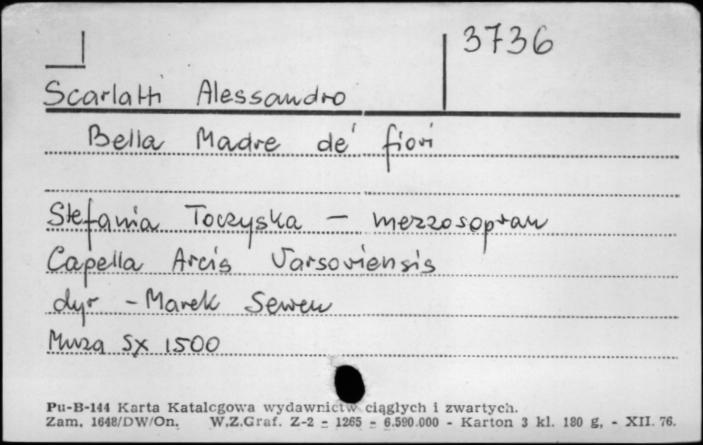 3736
Scarlatti Alessandro
Bella Madre de' fiori
Stefania Toczyska - mezzosopran
Capella Arcis Varsoviensis
dyr - Marek Sewen
Muza SX 1500
Pu-B-144 Karta Katalogowa wydawnictw ciągłych i zwartych.
Zam. 1648/DW/On. W.Z.Graf. Z-2 - 1265 - 6.590.000 - Karton 3 kl. 180 g, - XII. 76.